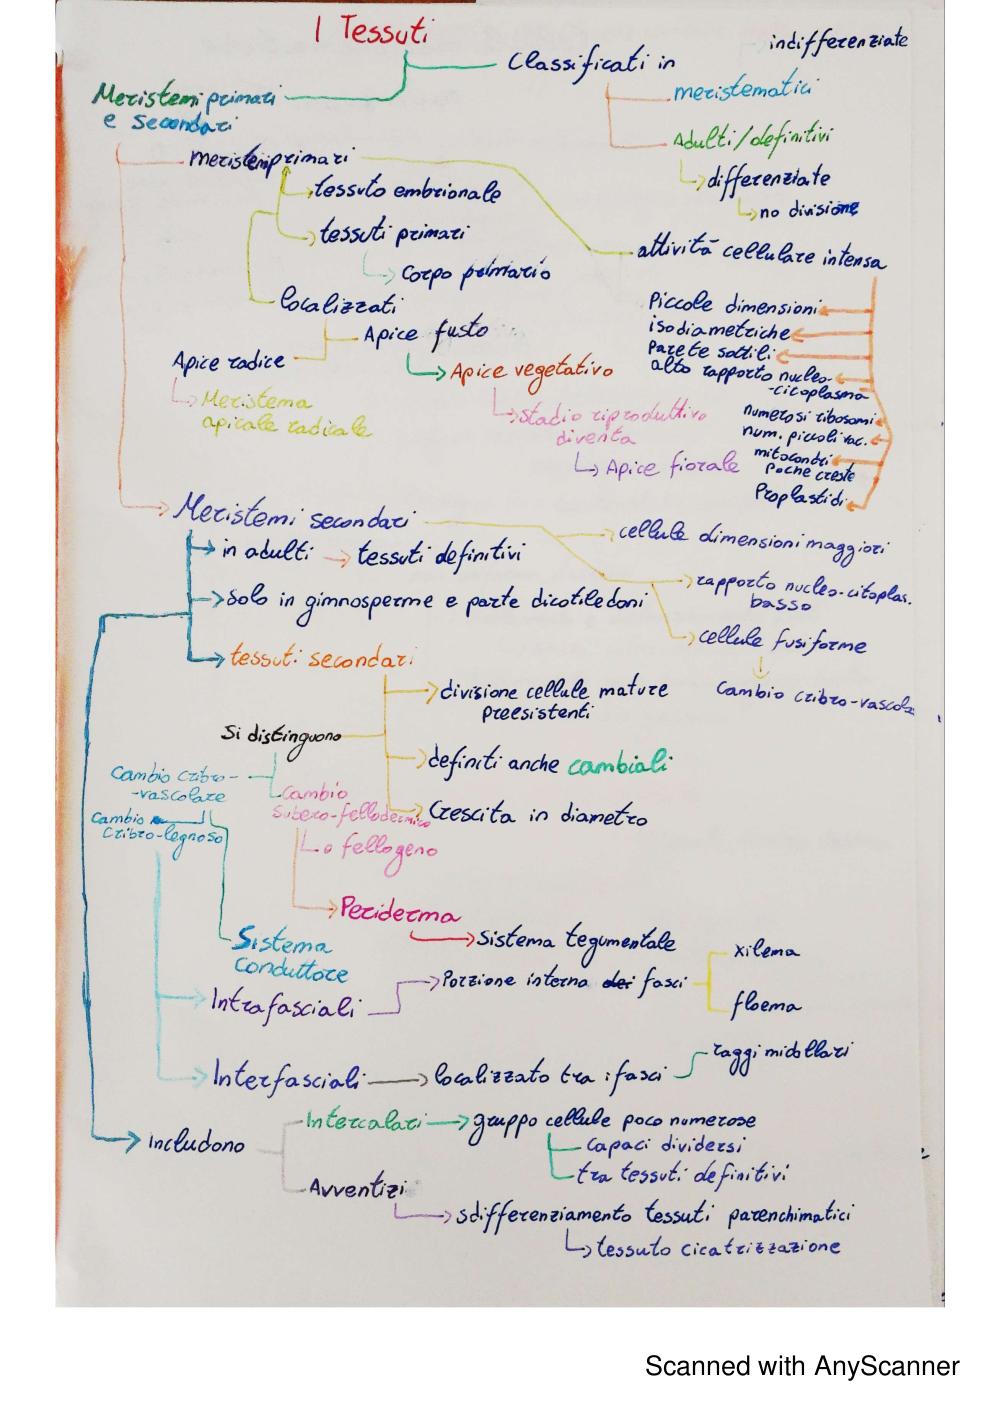 I Tessuti
indifferenziate
Classificati in
meristematici
Meristemi primari
e secondari
Adulti/definitivi
meristemi primari
differenziate
tessuto embrionale
no divisione
tessuti primari
attività cellulare intensa
Corpo primario
localizzati
Piccole dimensioni
isodiametriche
Parete sottili
alto rapporto nucleo-
-citoplasma
numerosi ribosomi
num. piccoli vac.
mitocondri
poche creste
Proplastidi
Apice fusto
Apice radice
Apice vegetativo
Meristema
apicale radicale
stadio riproduttivo
diventa
Apice fiorale
Meristemi secondari
cellule dimensioni maggiori
in adulti
tessuti definitivi
rapporto nucleo-citoplas.
basso
Solo in gimnosperme e parte dicotiledoni
cellule fusiforme
tessuti secondari
Cambio cribro-vascola
divisione cellule mature
preesistenti
Si distinguono
definiti anche cambiali
Cambio cribro-
-vascolare
Cambio
subero-fellodermico
Crescita in diametro
Cambio
cribro-legnoso
o fellogeno
Periderma
Sistema tegumentale
Sistema
Conduttore
xilema
Intrafasciali
Porzione interna dei fasci
floema
Interfasciali
localizzato tra i fasci
raggi midollari
Includono
Intercalari
gruppo cellule poco numerose
capaci dividersi
tra tessuti definitivi
Avventizi
sdifferenziamento tessuti parenchimatici
tessuto cicatrizzazione
Scanned with AnyScanner